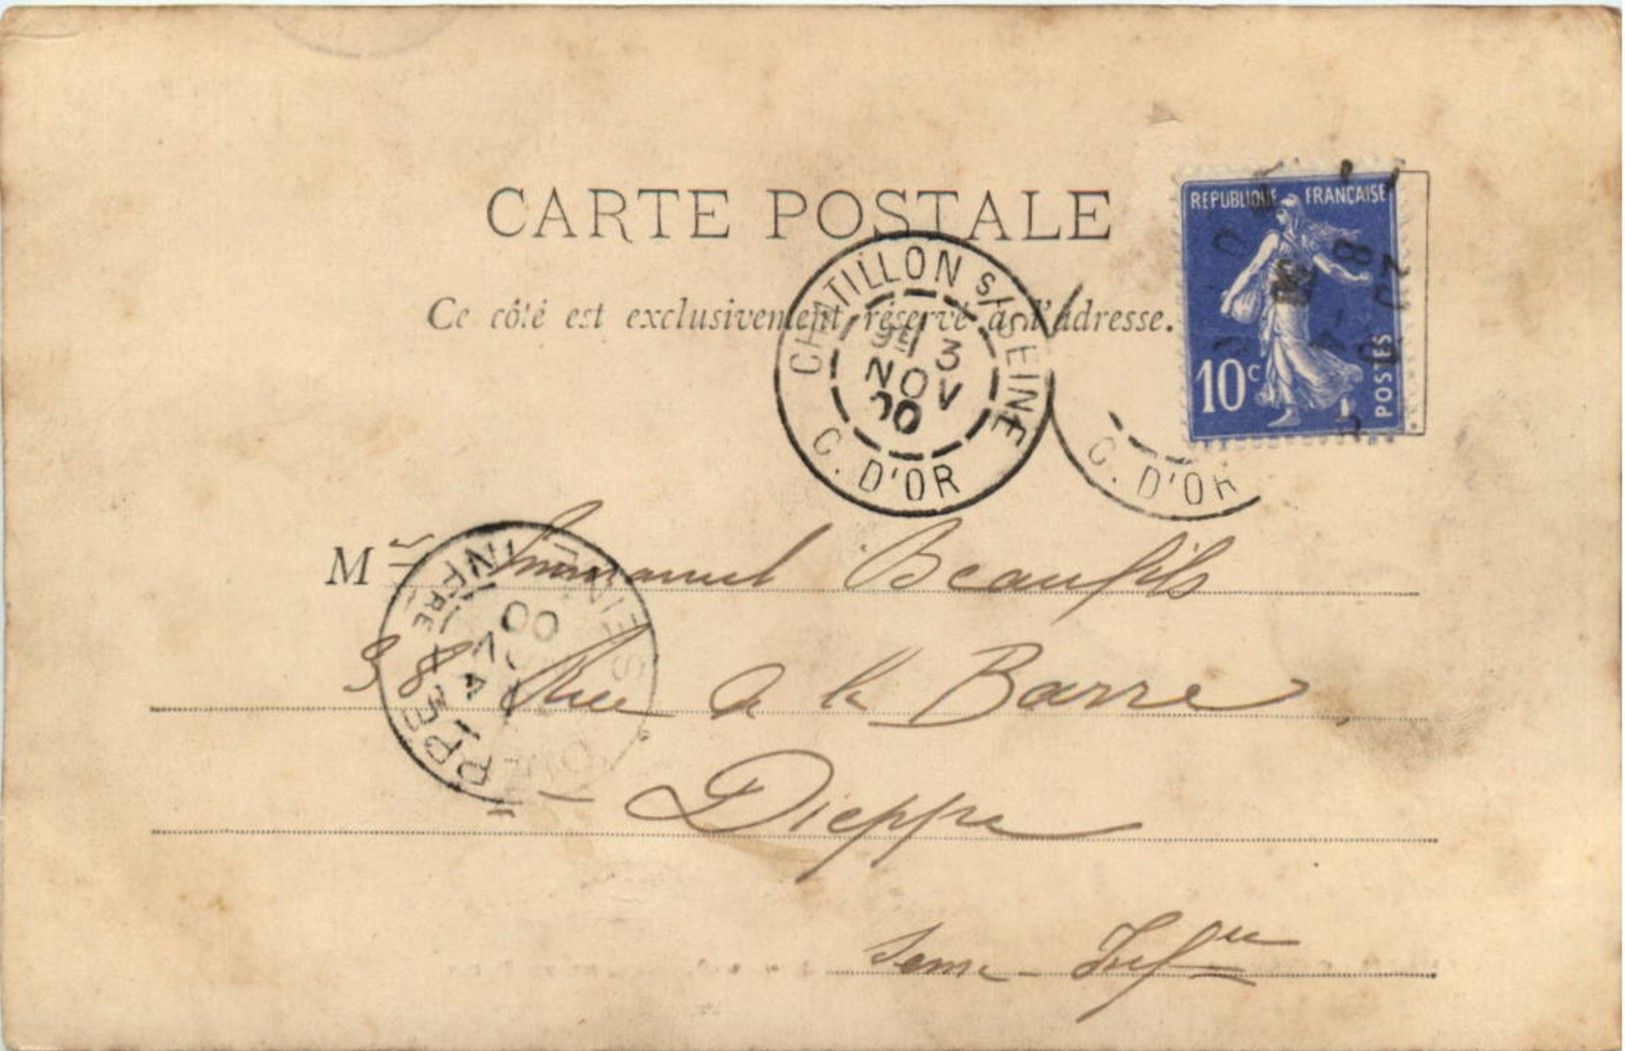 CARTE POSTALE
Ce côté est exclusivement réservé à l'adresse.
RÉPUBLIQUE FRANÇAISE
10c POSTES
CHATILLON s/SEINE
3
NOV
00
C. D'OR
C. D'OR
Mr Emmanuel Beaufils
38 Rue de la Barre
Dieppe
Seine-Infre
00